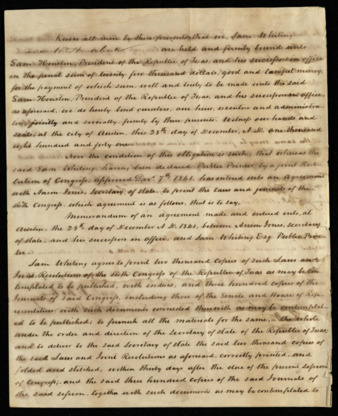 Know all men by these presents that we, Sam Whiting
are held and firmly bound unto
Sam Houston, President of the Republic of Texas, and his successors in office
in the penal sum of twenty five thousand dollars, good and lawful money,
for the payment of which sum well and truly to be made unto the said
Sam Houston, President of the Republic of Texas and his successors in office
as aforesaid, we do hereby bind ourselves, our heirs, executors and administra
tors, jointly and severally, firmly by these presents. Witness our hands and
seals, at the City of Austin, this 28th day of December, A.D. one thousand
eight hundred and forty one.
Now the condition of this obligation is such, that whereas the
said Sam Whiting having been declared Public Printer by a joint Reso
lution of Congress, approved 7th 1841, has entered into an Agreement
with Anson Jones, Secretary of State to print the laws and journals of the
Sixth Congress, which agreement is as follows, that is to say,
Memorandum of an Agreement made and entered into at
Austin, the 28th day of December A.D. 1841, between Anson Jones, Secretary
of State, and his successors in office, and Sam Whiting Esq. Public Prin
ter.
Sam Whiting agrees to print two thousand Copies of such Laws and
Joint Resolutions of the Sixth Congress of the Republic of Texas as may be con
templated to be published, with indexes, and three hundred copies of the
Journals of said Congress, including those of the Senate and House of Rep
resentatives, with such documents connected therewith as may be contemplat
ed to be published; to furnish all the materials for the same, the whole
under the order and direction of the Secretary of State of the Republic of Texas,
and to deliver to the said Secretary of State the said two thousand copies of
the said Laws and Joint Resolutions as aforesaid, correctly printed, and
folded and stitched, within thirty days after the close of the present session
of Congress, and the said three hundred copies of the said Journals of
the said session, together with such documents as may be contemplated to